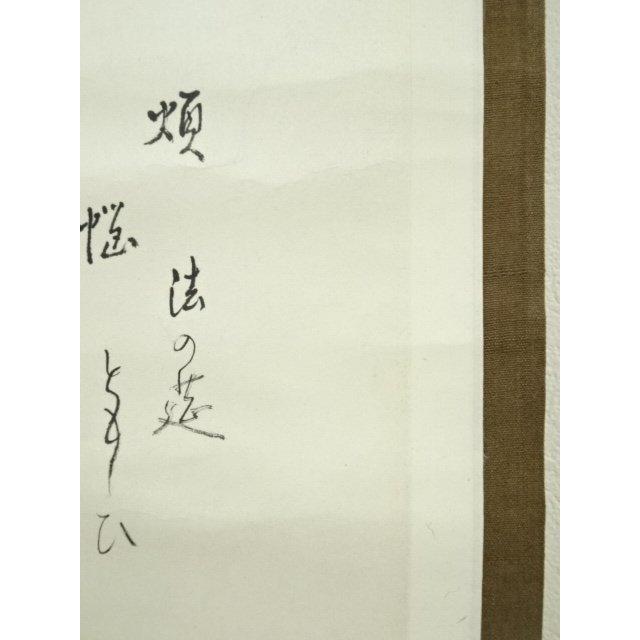 煩法の莚
悩ともしひ